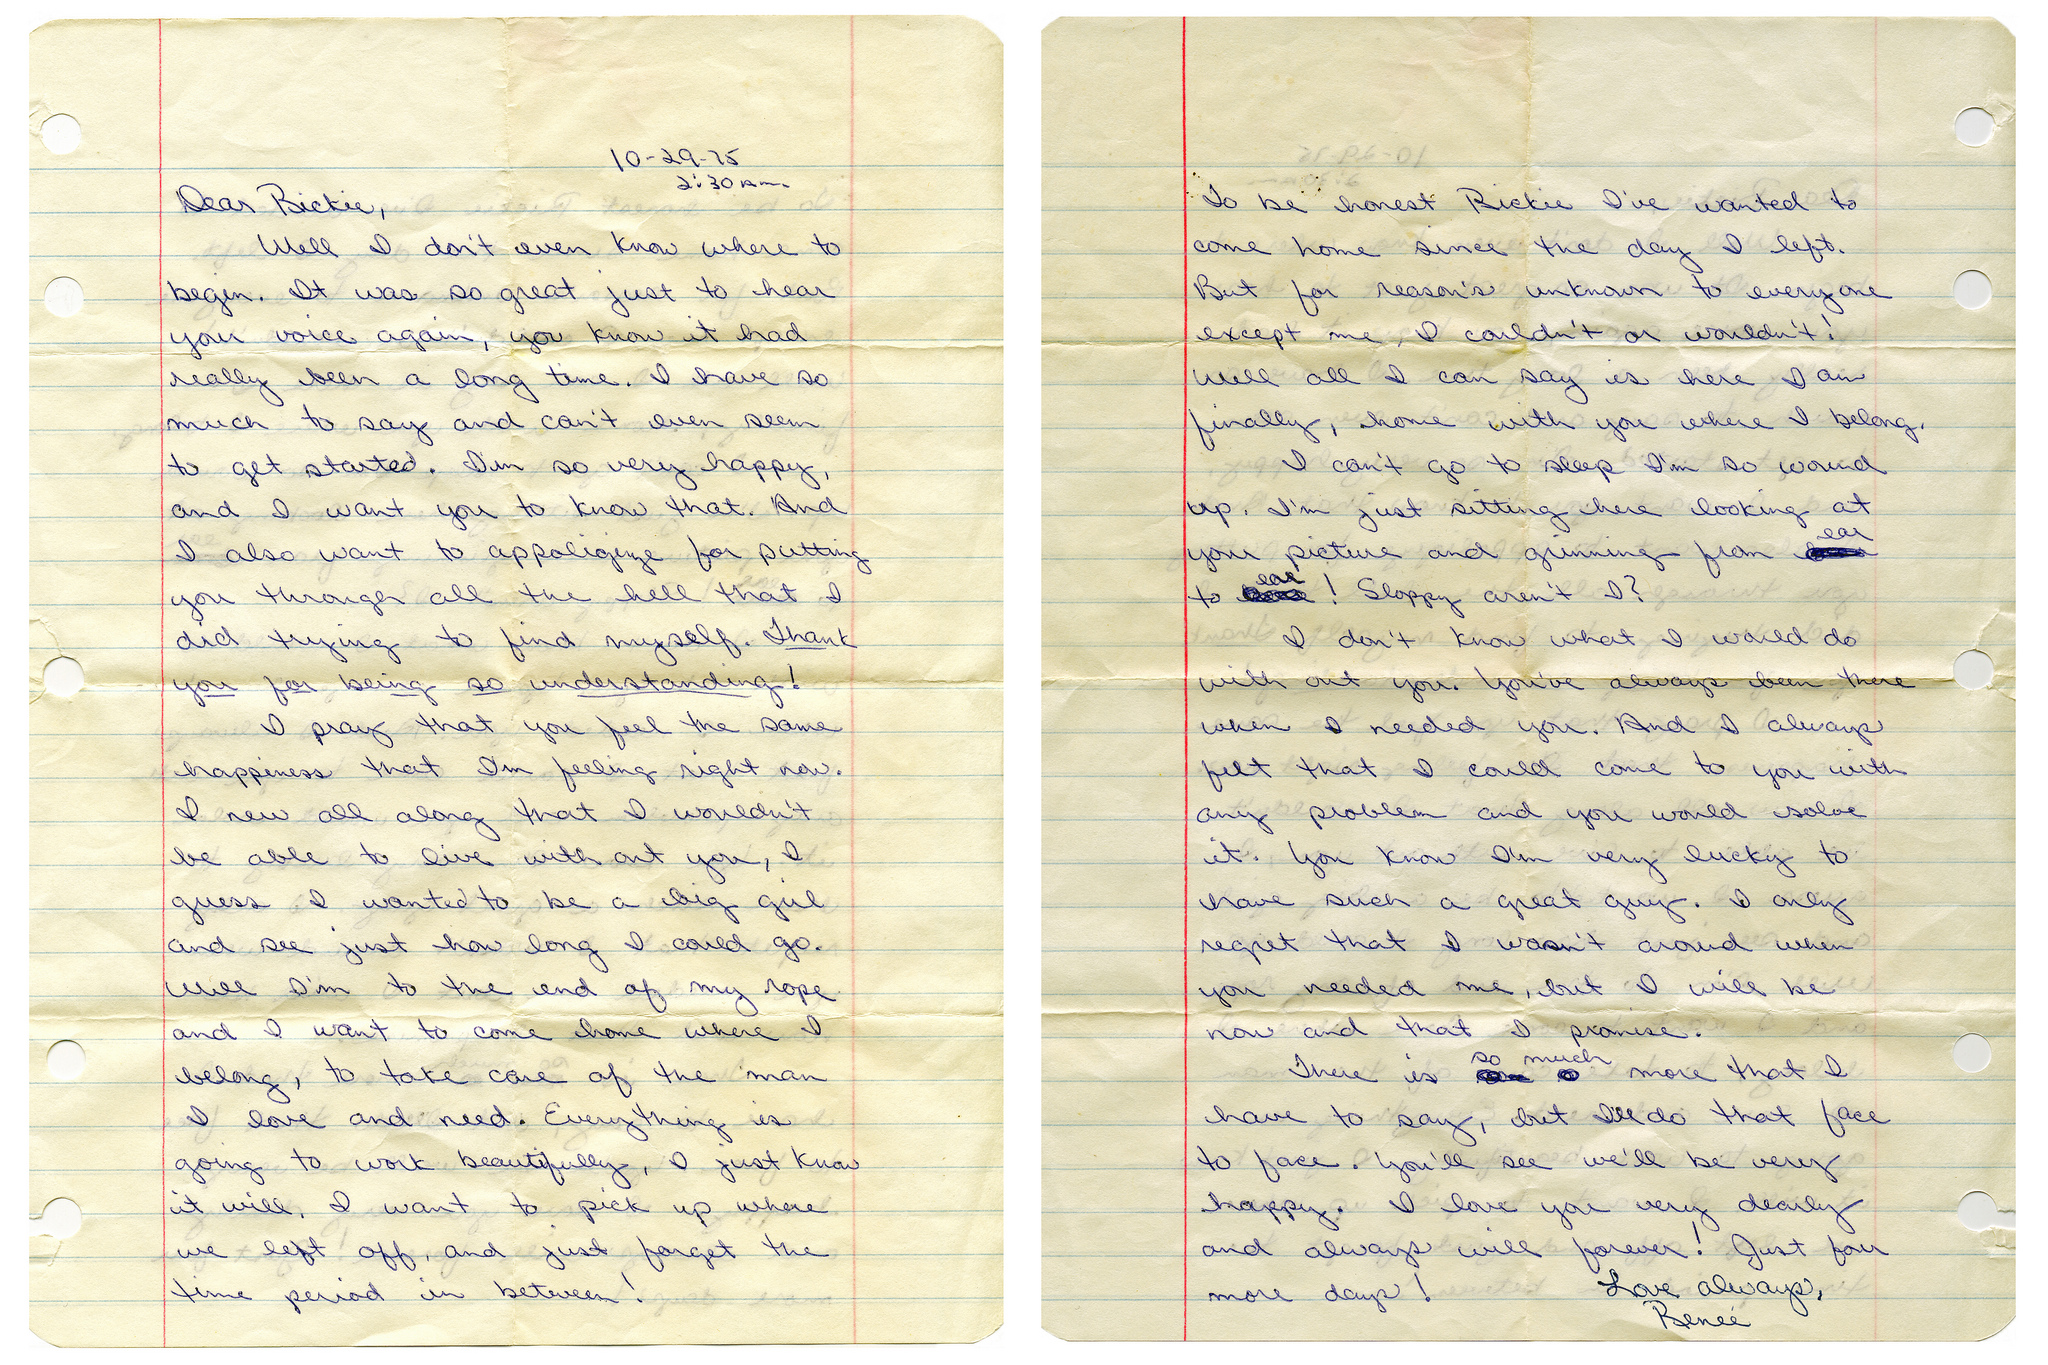 10-29-75
2:30 am.
Dear Rickie,
Well I don't even know where to
begin. It was so great just to hear
your voice again, you know it had
really been a long time. I have so
much to say and can't even seem
to get started. I'm so very happy,
and I want you to know that. And
I also want to appoligize for putting
you through all the hell that I
did trying to find myself. Thank
you for being so understanding!
I pray that you feel the same
happiness that I'm feeling right now.
I new all along that I wouldn't
be able to live with out you, I
guess I wanted to be a big girl
and see just how long I could go.
Well I'm to the end of my rope
and I want to come home where I
belong, to take care of the man
I love and need. Everything is
going to work beautifully, I just know
it will. I want to pick up where
we left off, and just forget the
time period in between!
To be honest Rickie I've wanted to
come home since the day I left.
But for reason's unknown to everyone
except me, I couldn't or wouldn't!
Well all I can say is here I am
finally, home with you where I belong.
I can't go to sleep I'm so wound
up. I'm just sitting here looking at
your picture and grinning from ear
to ear! Sloppy aren't I?
I don't know what I would do
with out you. You've always been there
when I needed you. And I always
felt that I could come to you with
any problem and you would solve
it. You know I'm very lucky to
have such a great guy. I only
regret that I wasn't around when
you needed me, but I will be
now and that I promise.
There is so much more that I
have to say, but I'll do that face
to face. You'll see we'll be very
happy. I love you very dearly
and always will forever! Just four
more days!
Love always,
Reneé